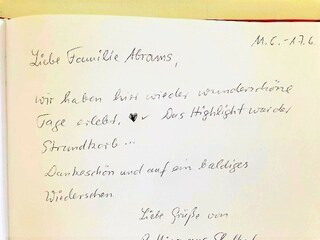 11.6. - 17.6.
Liebe Familie Abrams,
wir haben hier wieder wunderschöne
Tage erlebt. ♥ Das Highlight war der
Strandkorb ...
Dankeschön und auf ein baldiges
Wiedersehen.
Liebe Grüße von
aus